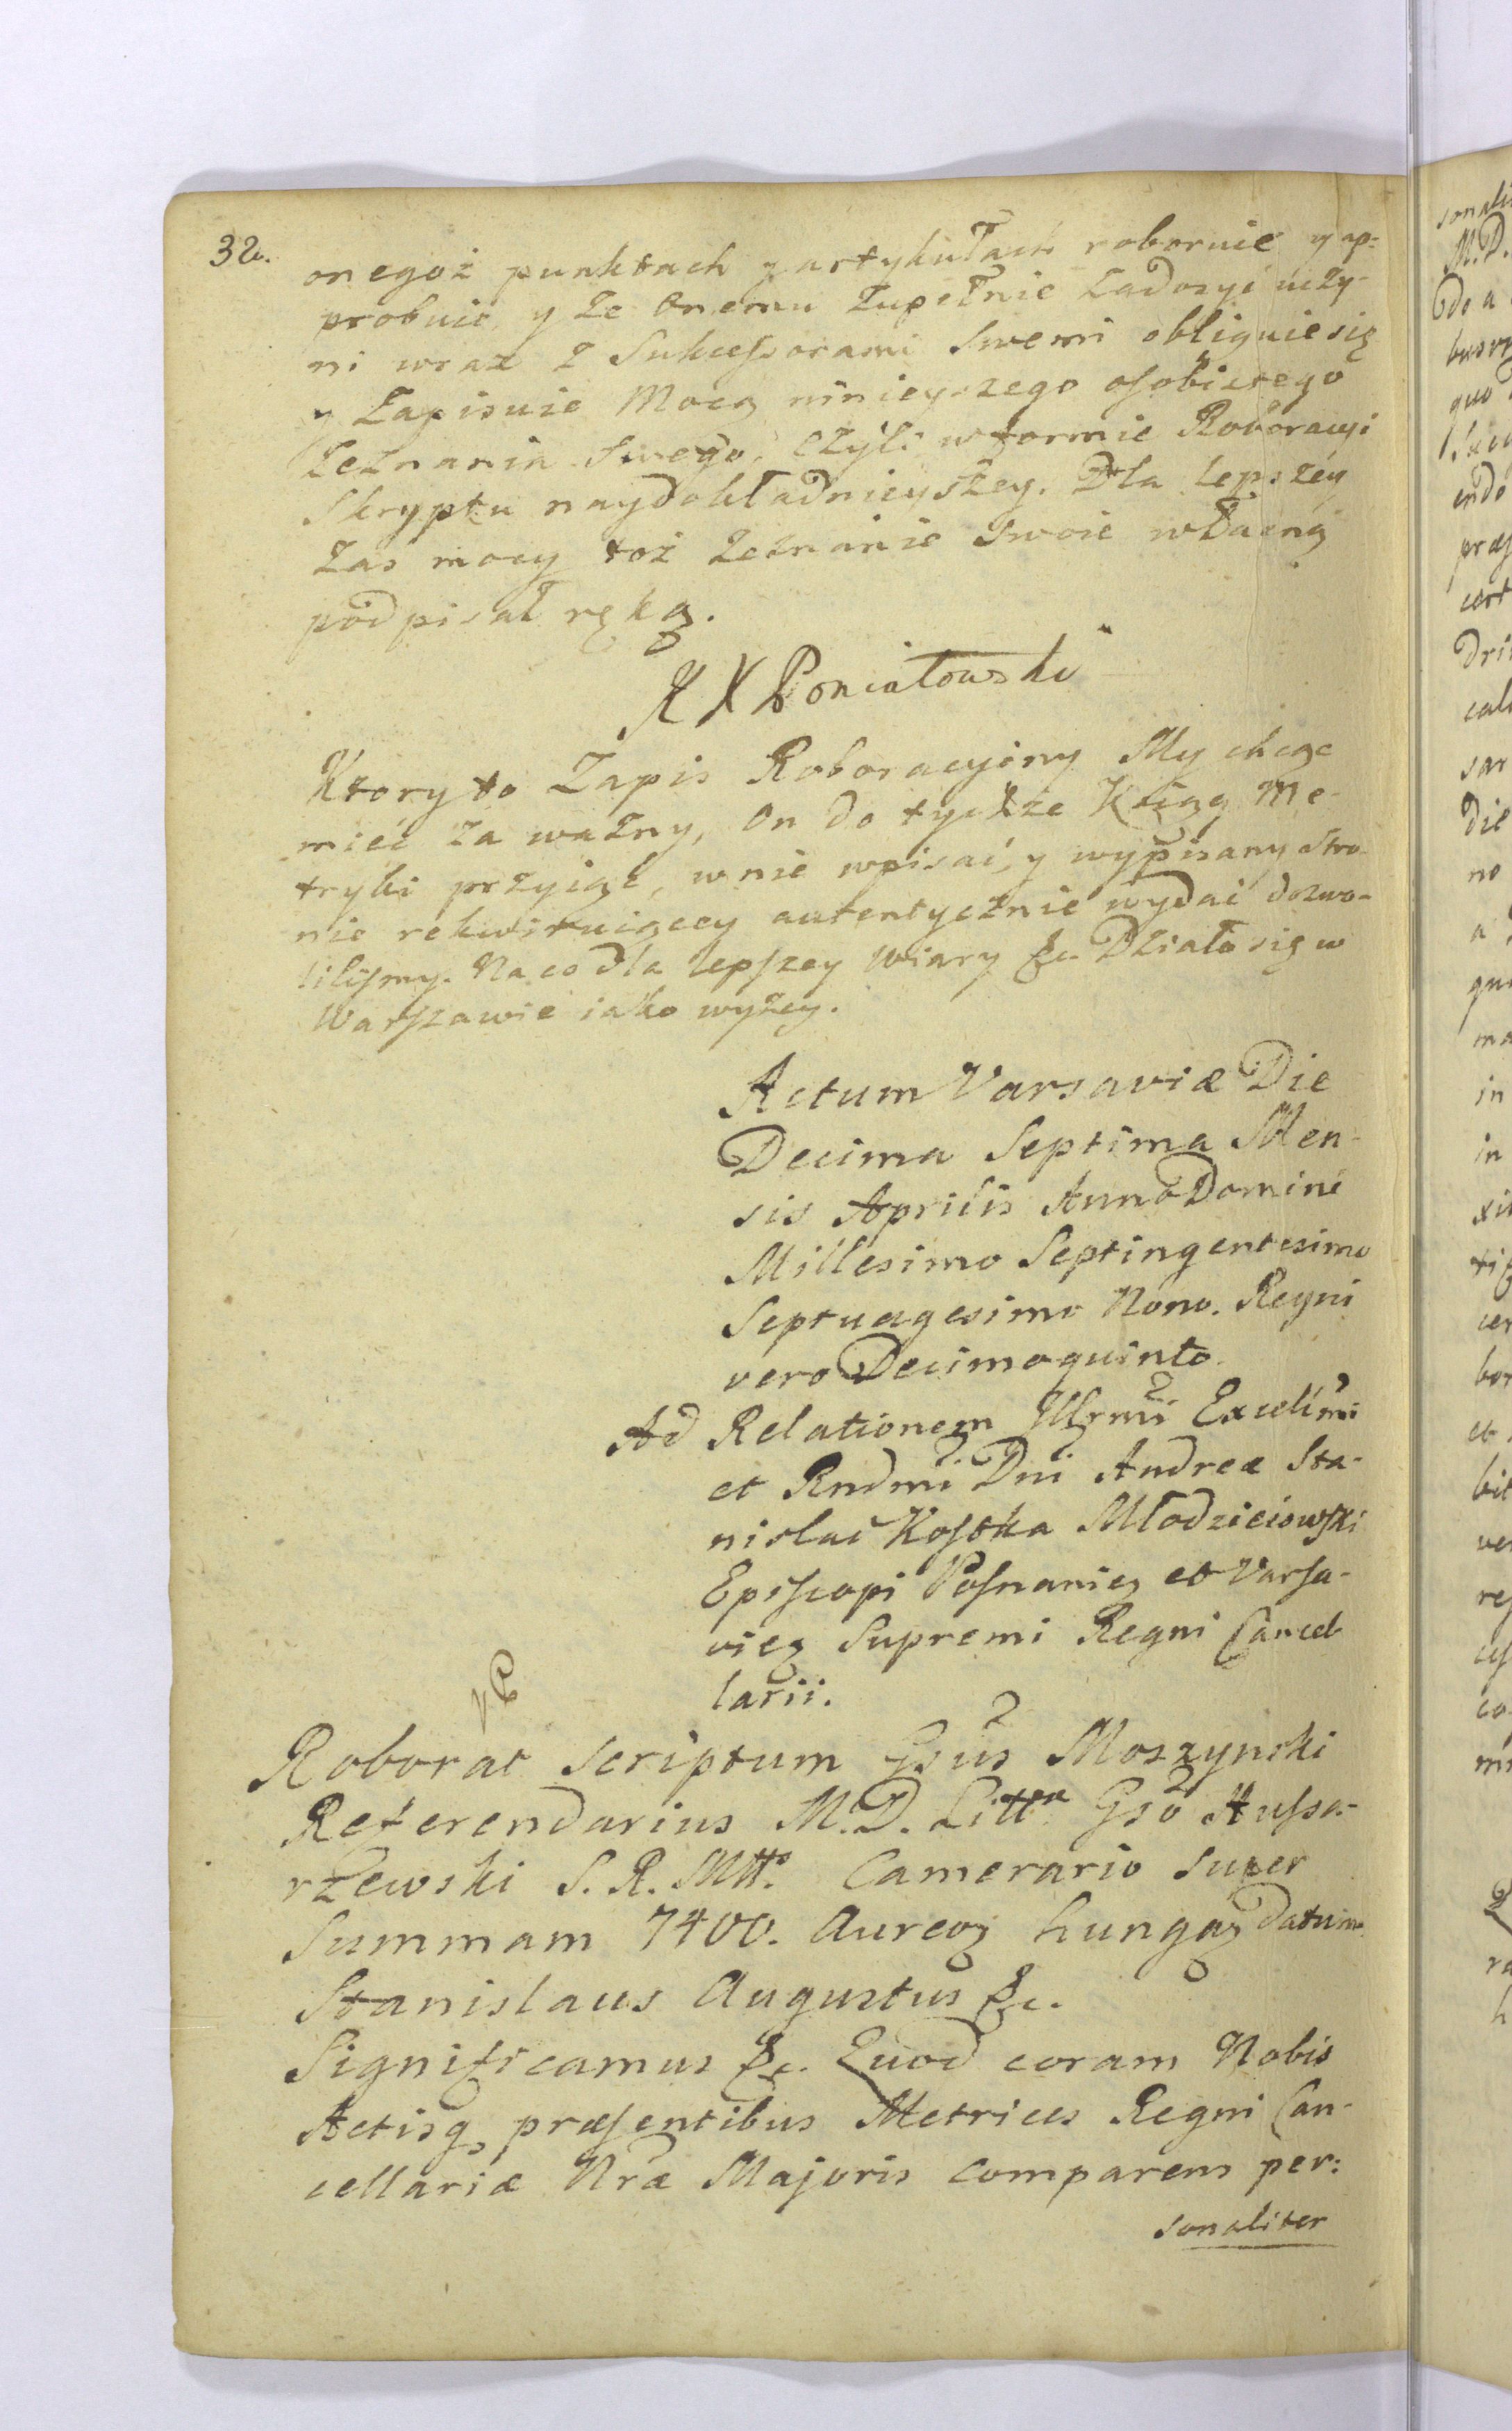 32.
onegoż punktach y artykułach roboruie y ap:
probuie, y że Onemu zupełnie zadosyć uczy-
ni wraz z Sukcessorami Swemi obliguie się
y Zapisuie Mocą ninieyszego osobistego
Zeznania Swego, czyli w formie Roboracyi
Skryptu naydokładnieyszey. Dla lepszey
zas mocy toż Zeznanie Swoie własną
podpisał ręką.
K X Poniatowski
Ktory to Zapis Roboracyiny My chcąc
mieć za ważny, On do tychże Xiąg Me-
tryki przyiąć, w nie wpisać, y wypisany Stro-
nie rekwiruiącey autentycznie wydać dozwo-
lilismy. Na co dla lepszey Wiary &c. Działo się w
Warszawie iako wyżey.
Actum Varsaviæ Die
Decima Septima Men-
sis Aprilis Anno Domini
Millesimo Septingentesimo
Septuagesimo Nono. Regni
vero Decimoquinto.
Ad Relationem Illrmi Excelímì
et Rndmi Dni Andreæ Sta-
nislai Kostka Młodzieiowski
Episcopi Posnanien et Varsa-
vien Supremi Regni Cancel
larii.
Roborat Scriptum Gsus Moszynski
Referendarius M.D. Litt.æ Gso Hussa-
rzewski S. R. Mtts. Camerario super
Summam 7400. Aureoꝝ hungaꝝ datum.
Stanislaus Augustus &c.
Significamus &c. Quod coram Nobis
Actisq præsentibus Metrices Regni Can-
cellariæ Nræ Majoris comparens per:
sonaliter